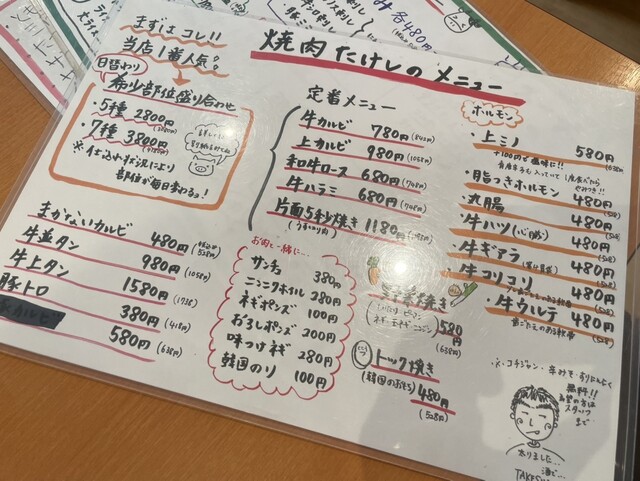 焼肉たけしのメニュー
まずはコレ!!
当店1番人気!!
日替わり
希少部位盛り合わせ
・5種 2800円
・7種 3800円
※仕込れ状況により
部位が毎日変わるよ!
まかないカルビ 480円 528円
牛並タン 980円 (1058円)
牛上タン 1580円 (1738円)
豚トロ 380円 (418円)
580円 (638円)
定番メニュー
牛カルビ 780円
上カルビ 980円 (1058円)
和牛ロース 680円 (748円)
牛ハラミ 680円 (748円)
片面5秒焼き 1180円
(うすぎり肉)
お肉と一緒に…
サンチュ 380円
ニンニクホイル 280円
ネギポンズ 100円
おろしポンズ 200円
味つけネギ 280円
韓国のり 100円
野菜焼き 580円
(638円)
トック焼き
(韓国のおもち) 480円
(528円)
ホルモン
・上ミノ 580円
(638円)
+100円で塩味に!!
・脂つきホルモン 480円
・丸腸 480円
・牛ハツ 480円
・牛ギアラ 480円
・牛コリコリ 480円
・牛ウルテ 480円
(528)
歯ごたえのある軟骨
※コチジャン・辛みそ・すりにんにく
無料!!
希望の方は
スタッフ
まで
TAKESHI